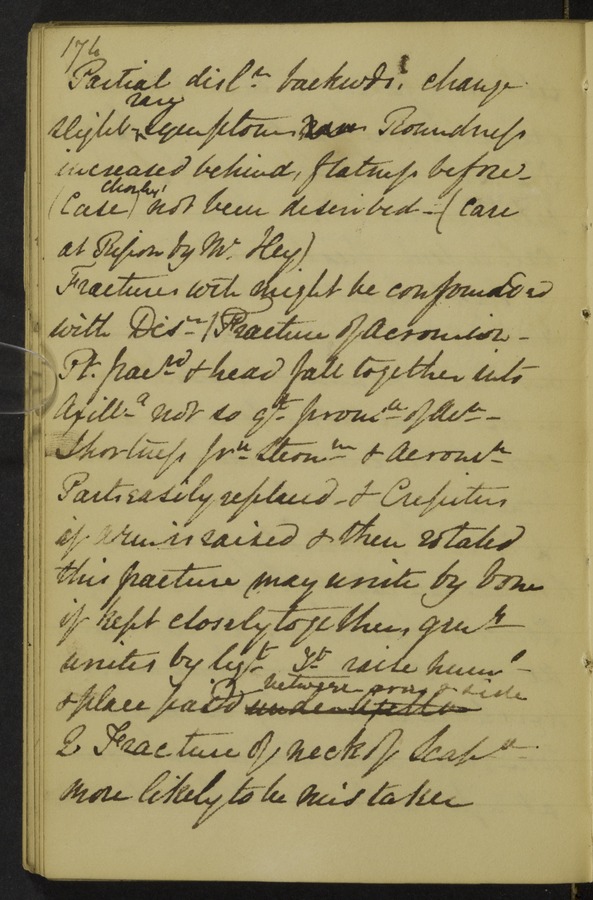 176
Partial disl.n backwds. change
slight, rare symptoms Roundness
increased behind, flatness before -
(Case) not been described - (Case
at Ripon by Mr. Hey)
Fractures wch might be confounded
with Disn - 1 Fracture of Acromion -
Pt. frac.rd & head fall together into
Axill.a not so gt. promce of Acrn -
Shortness frm Sternm & Acromn
Parts easily replaced - & Crepitus
if arm is raised & then rotated
this fracture may unite by bone
if kept closely together, genlly
unites by ligt. Tt raise humr -
between arm & side
& place pad
2 Fracture of neck of Scapa
more likely to be mistaken